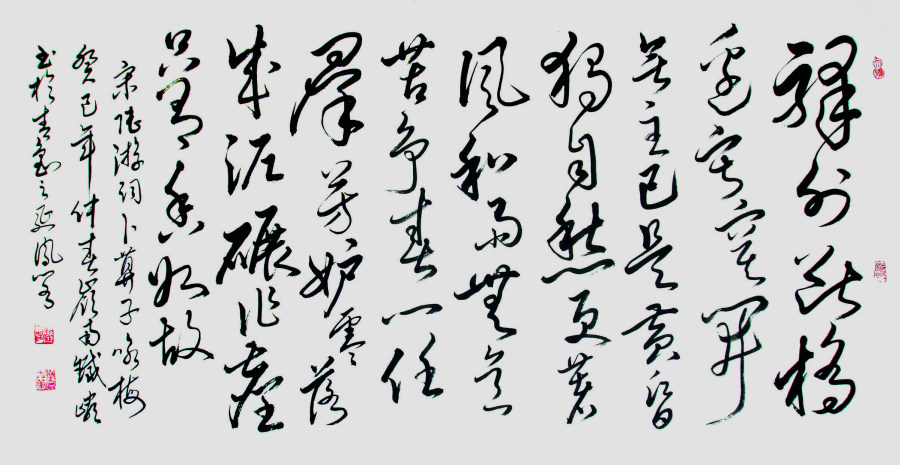 驛外斷橋
邊寂寞開
無主已是黃昏
獨自愁更著
風和雨無意
苦爭春一任
羣芳妒零落
成泥碾作塵
只有香如故
宋陸游詞卜算子咏梅
癸巳年仲春嶺南鐵
书於青之延風